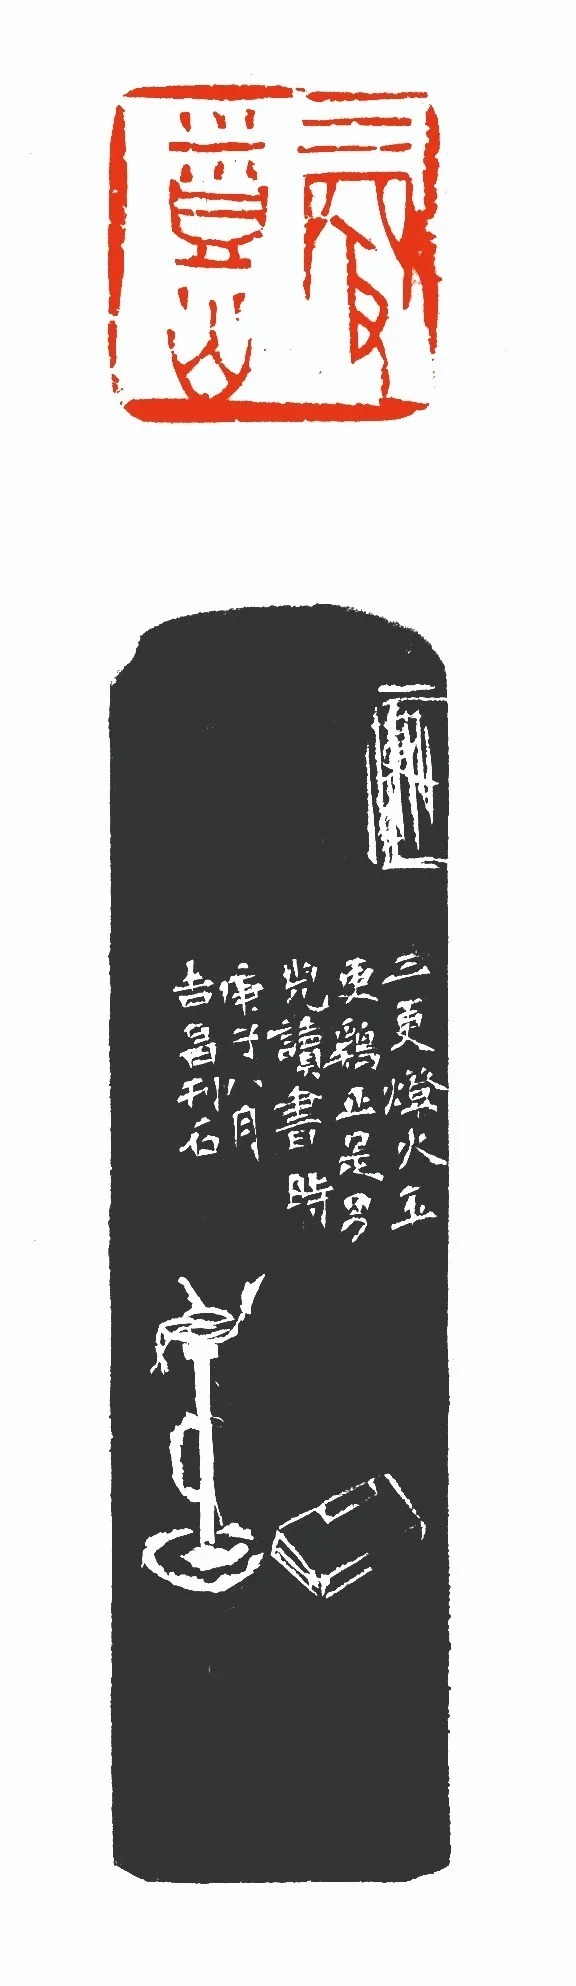 三更燈火
三更燈火五
更鷄正是男
兒讀書時
庚子八月
吉昌刊石